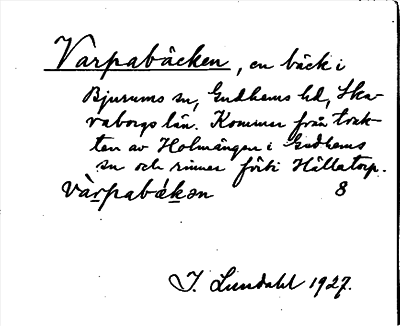 Varpabäcken, en bäck i
Bjurums sn, Gudhems hd, Ska-
raborgs län. Kommer från trak-
ten av Holmängen i Gudhems
sn och rinner förbi Hällatorp.
vàrpabákən 8
J. Lundahl 1927.